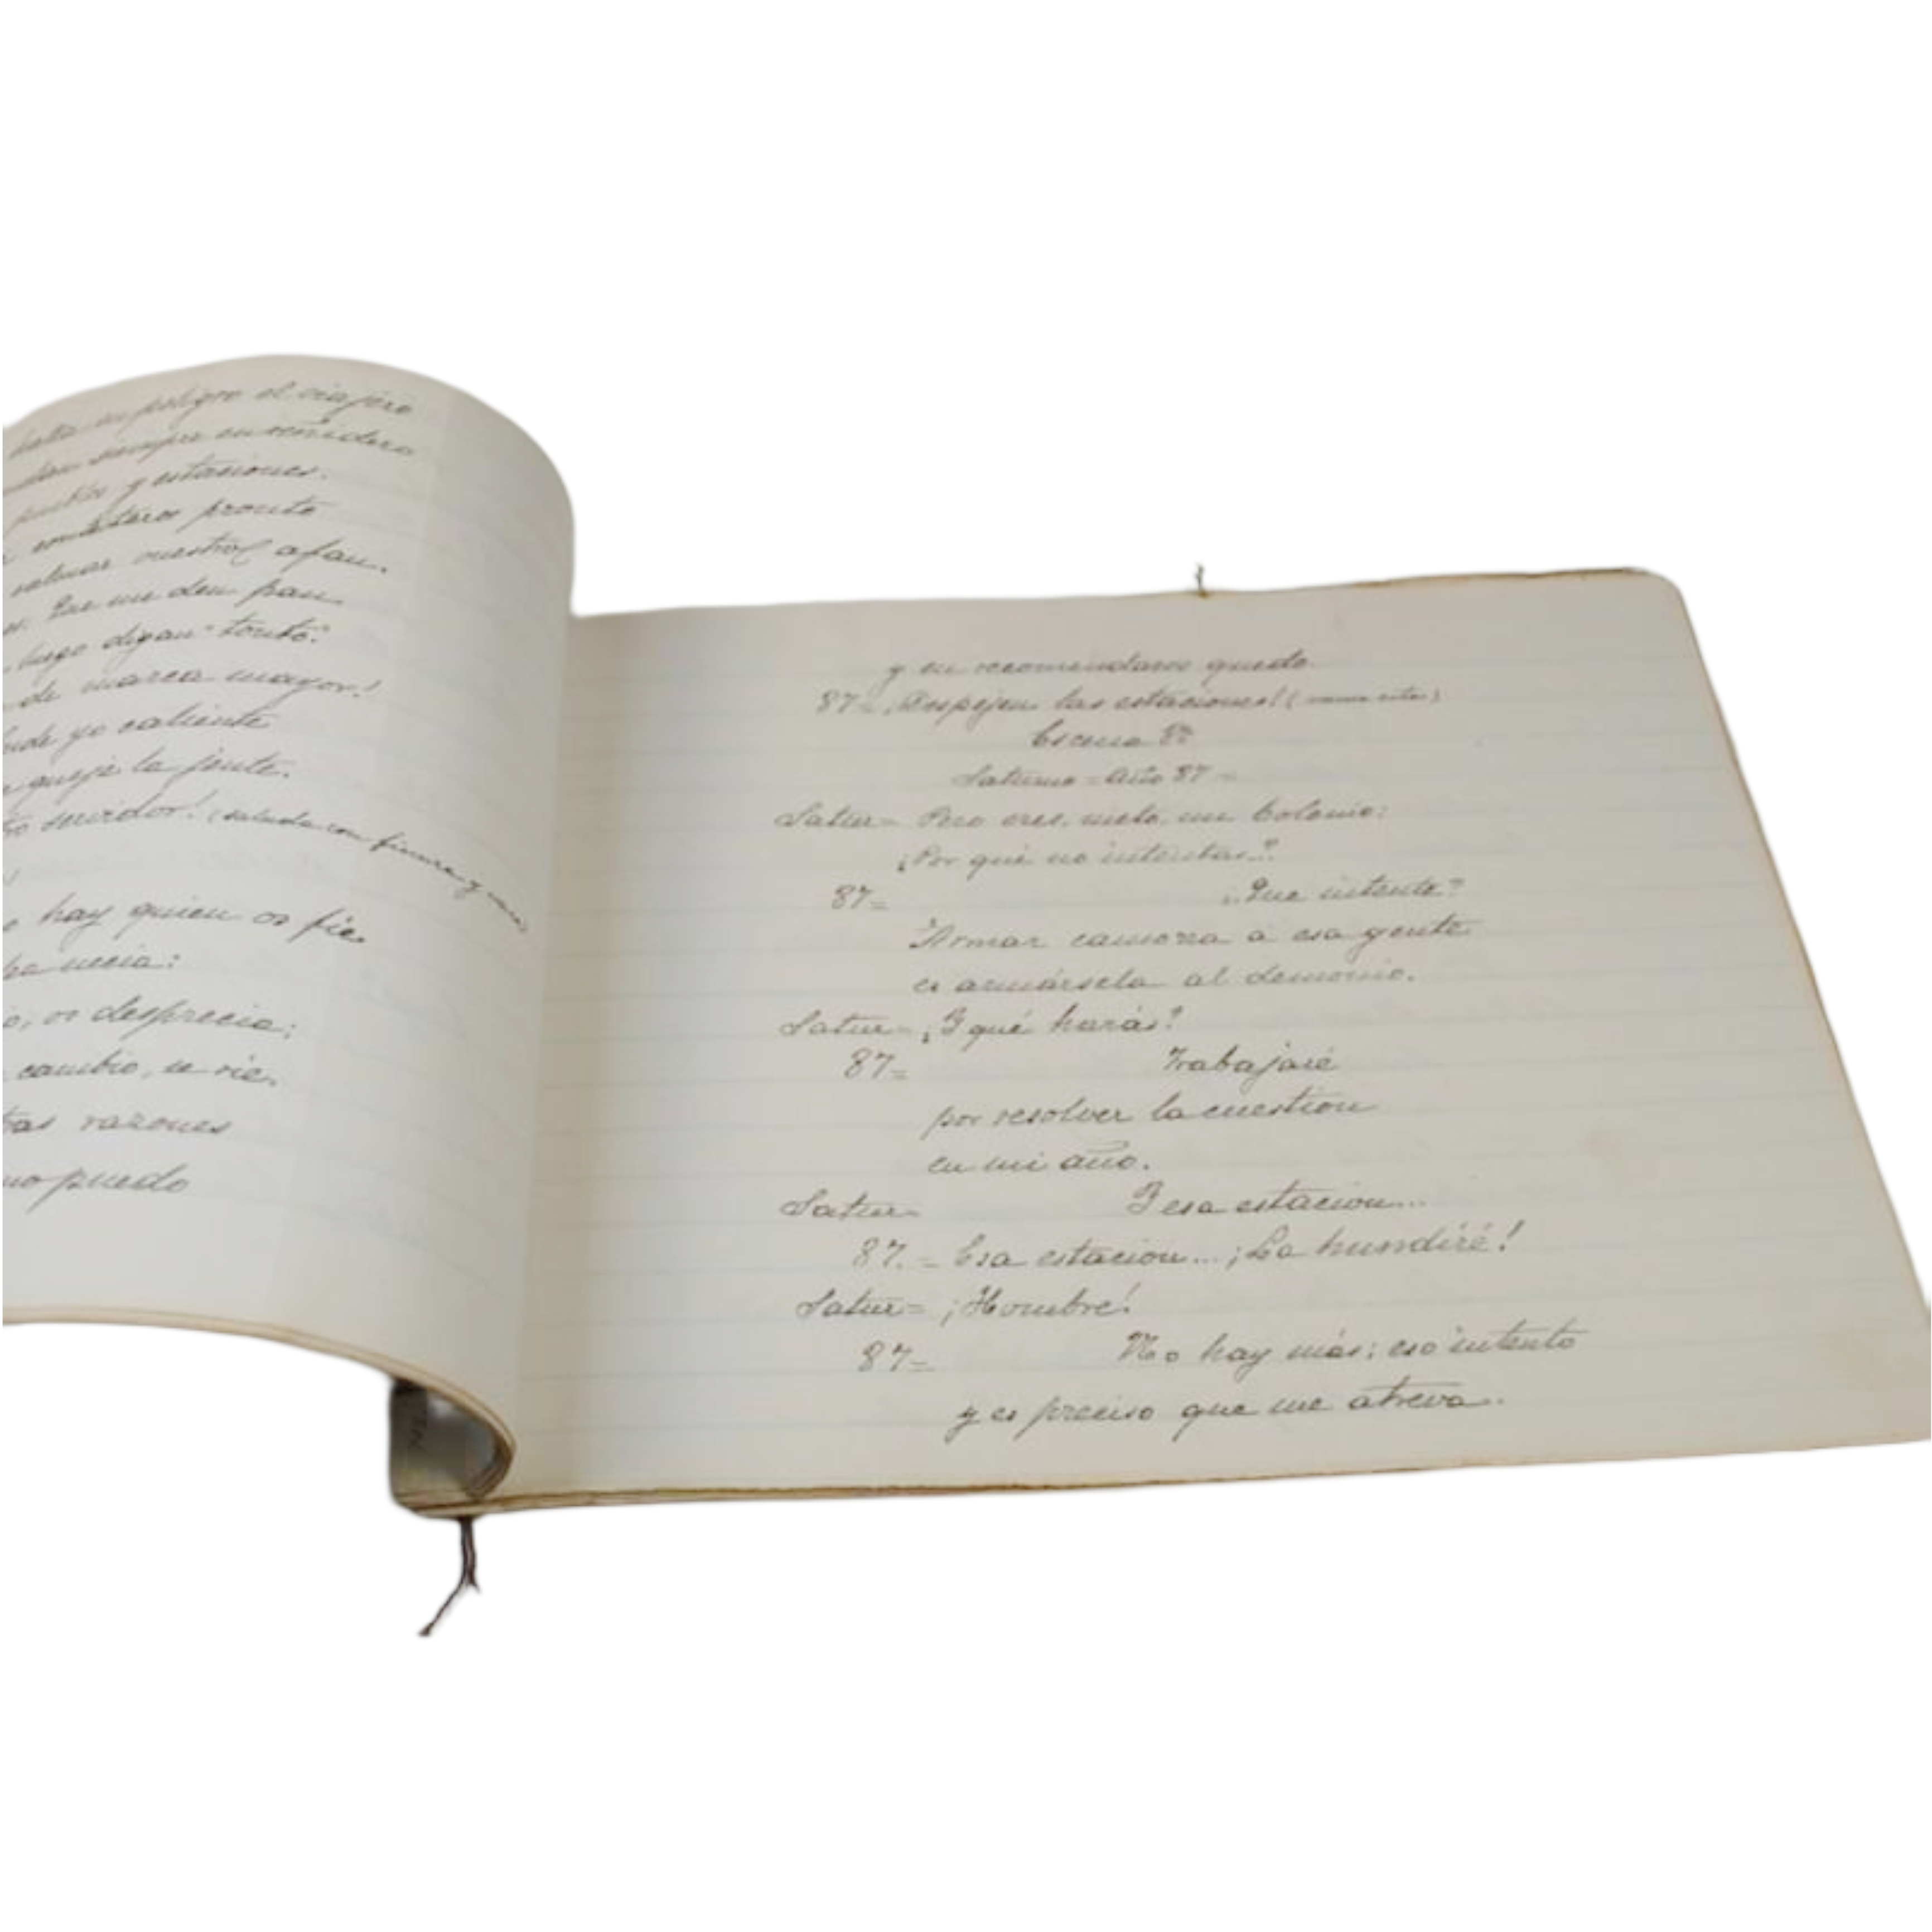 en peligro el viajero
siempre en reñidero
pueblos y estaciones.
contéstaros pronto
calmar vuestro afan.
Que me den pan
luego digan "tonto."
de marca mayor!
ande yo caliente
queje la jente.
servidor! (saluda con finura y vase)
hay quien os fie
necia:
os desprecia;
cambio, se rie.
razones
no puedo
y en recomendaros quedo.
87= ¡Despejen las estaciones! (vanse estas)
Escena 8ª
Saturno = Año 87 =
Satur= Pero eres, nieto, un bolonio:
¿Por qué no intentas..?
87= ¿Que intente?
Armar camorra á esa gente
es armársela al demonio.
Satur= ¿Y qué harás?
87= Trabajaré
por resolver la cuestion
en mi año.
Satur= Y esa estacion...
87.= Esa estacion... ¡La hundiré!
Satur= ¡Hombre!
87= No hay más: eso intento
y es preciso que me atreva.